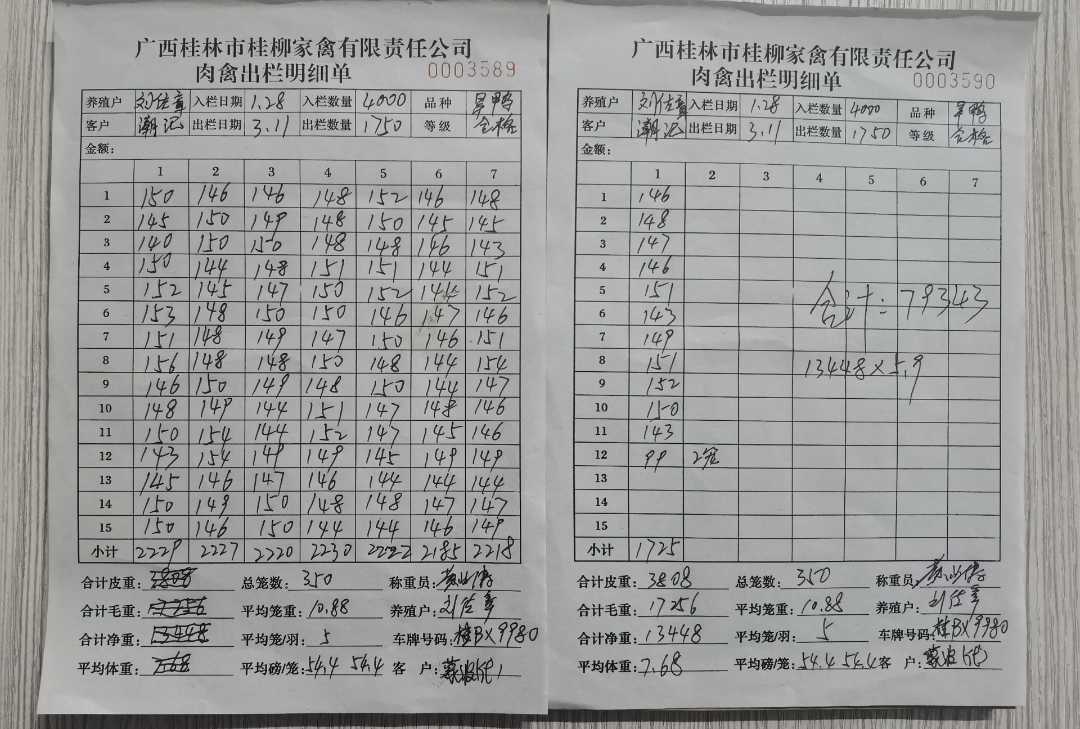 广西桂林市桂柳家禽有限责任公司
肉禽出栏明细单 0003589
养殖户 刘佳章 入栏日期 1.28 入栏数量 4000 品种 旱鸭
客户 潮记 出栏日期 3.11 出栏数量 1750 等级 合格
金额:
1 2 3 4 5 6 7
1 150 146 146 148 152 146 148
2 145 150 149 148 150 145 145
3 140 150 150 148 148 146 143
4 150 144 148 151 151 144 151
5 152 145 147 150 152 144 152
6 153 148 150 150 146 147 146
7 151 148 149 147 150 146 151
8 156 148 148 150 148 144 154
9 146 150 149 148 150 144 147
10 148 149 144 151 147 148 146
11 150 154 144 152 147 145 146
12 143 154 149 149 145 149 149
13 145 146 147 146 144 144 144
14 150 149 150 148 148 147 147
15 150 146 150 144 144 146 149
小计 2229 2227 2220 2230 2222 2185 2218
合计皮重: 3808 总笼数: 350 称重员:
合计毛重: 17256 平均笼重: 10.88 养殖户: 刘佳章
合计净重: 13448 平均笼/羽: 5 车牌号码: 桂BX9980
平均体重: 7.68 平均磅/笼: 54.4 54.4 客 户:
广西桂林市桂柳家禽有限责任公司
肉禽出栏明细单 0003590
养殖户 刘佳章 入栏日期 1.28 入栏数量 4000 品种 旱鸭
客户 潮记 出栏日期 3.11 出栏数量 1750 等级 合格
金额:
1 2 3 4 5 6 7
1 146
2 148
3 147
4 146
5 151 合计: 79343
6 143
7 149
8 151 13448×5.9
9 152
10 150
11 143
12 99 2笼
13
14
15
小计 1725
合计皮重: 3808 总笼数: 350 称重员:
合计毛重: 17256 平均笼重: 10.88 养殖户: 刘佳章
合计净重: 13448 平均笼/羽: 5 车牌号码: 桂BX9980
平均体重: 7.68 平均磅/笼: 54.4 54.4 客 户: